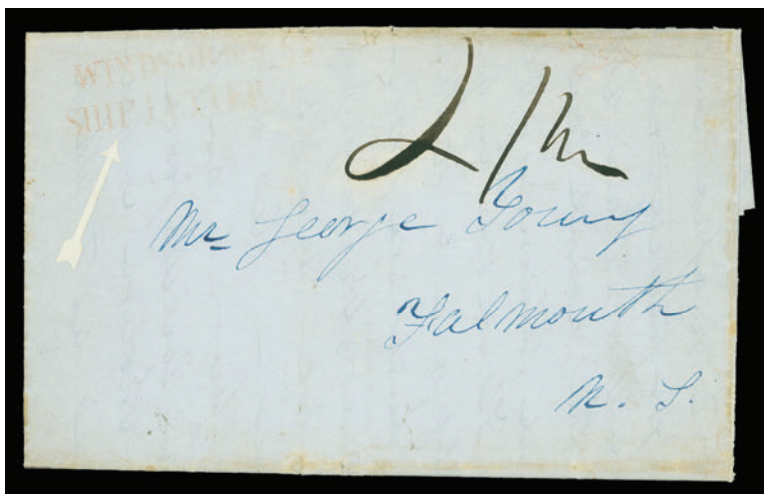 WINDSOR N.S.
SHIP LETTER
Mr George Young
Falmouth
N. S.